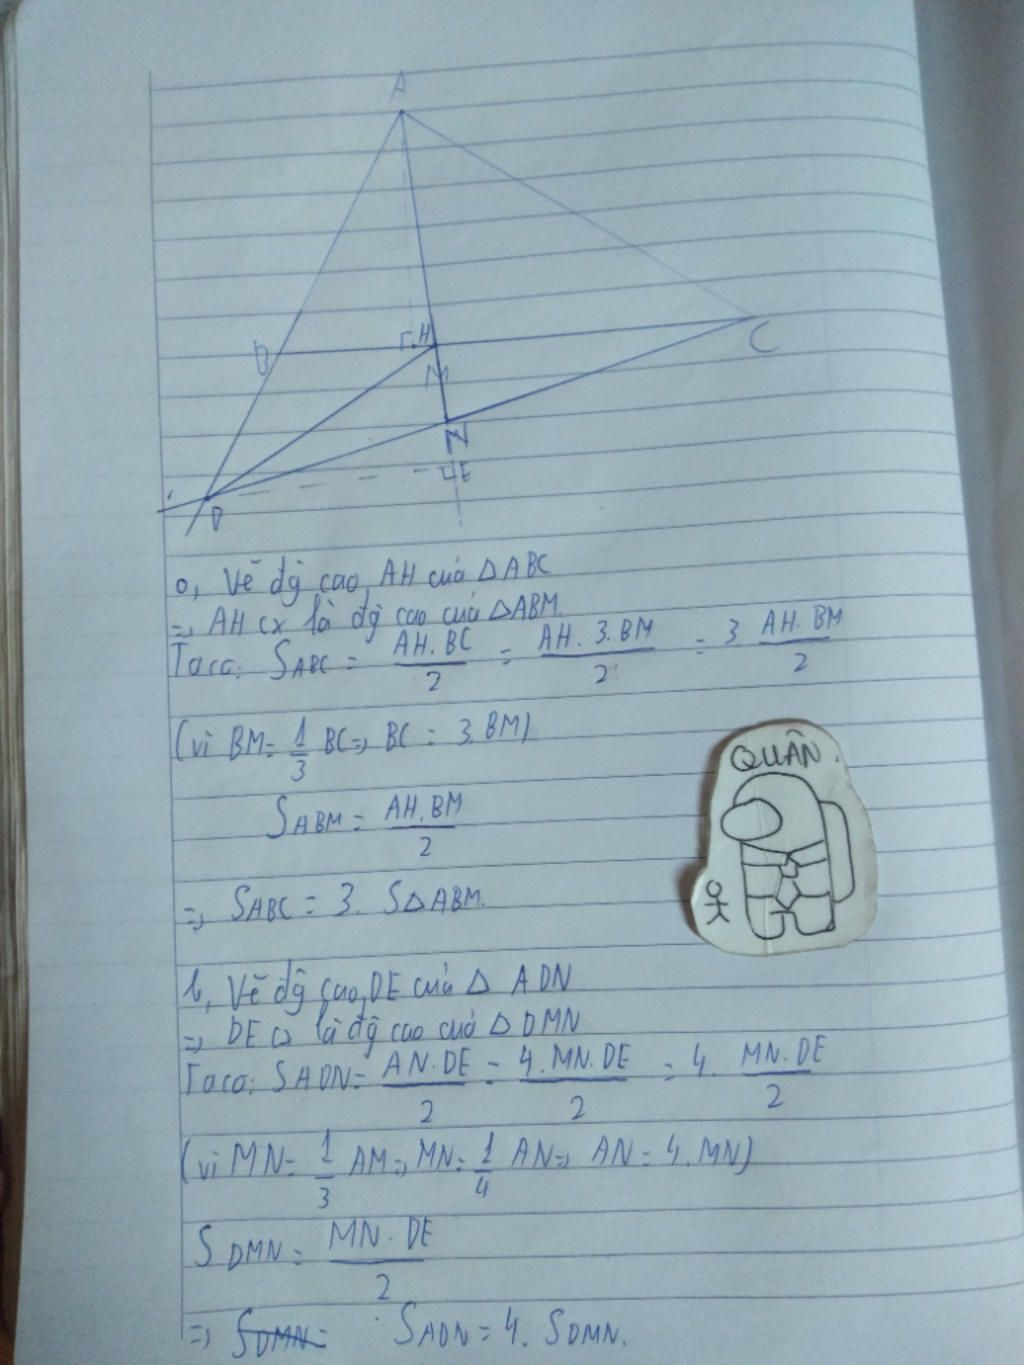 A
B
H
C
M
N
E
D
a, Vẽ đg cao AH của △ABC
=> AH cx là đg cao của △ABM.
Ta có: SABC = AH.BC/2 = AH.3.BM/2 = 3. AH.BM/2
(vì BM = 1/3 BC => BC = 3.BM)
QUÂN
SABM = AH.BM/2
=> SABC = 3. S△ABM.
b, Vẽ đg cao DE của △ ADN
=> DE cx là đg cao của △DMN
Ta có: SADN = AN.DE/2 = 4.MN.DE/2 = 4. MN.DE/2
(vì MN = 1/3 AM => MN = 1/4 AN => AN = 4.MN)
SDMN = MN.DE/2
=> SDMN = SADN = 4. SDMN.